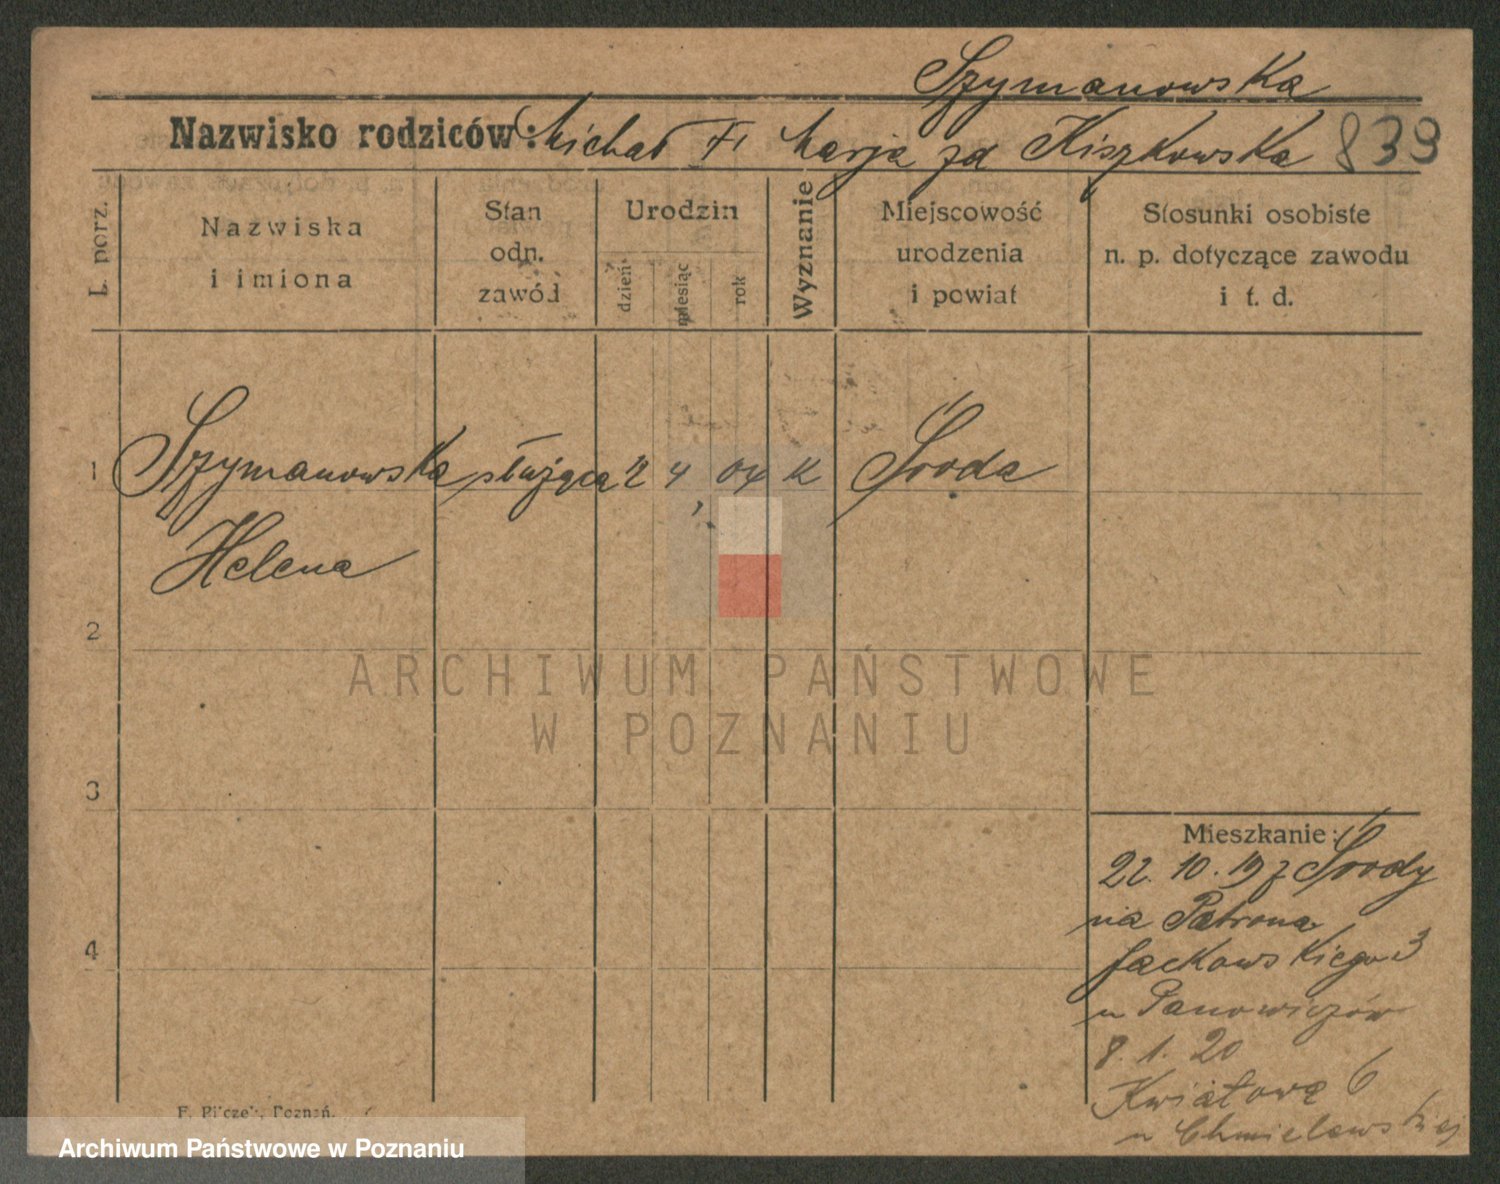 Szymanowska
Nazwisko rodziców: Michał Fr Marja zd Kiszkowska 839
L. porz.
Nazwiska
i imiona
Stan
odn.
zawód
Urodzin
dzień
miesiąc
rok
Wyznanie
Miejscowość
urodzenia
i powiat
Stosunki osobiste
n. p. dotyczące zawodu
i t. d.
1 Szymanowska służąca 4 04 K Środa
Helena
2
ARCHIWUM PAŃSTWOWE
W POZNANIU
3
Mieszkanie:
22. 10. 19 z Środy
na Patrona
4
Jackowskiego 3
u Panowiczów
8. 1. 20
Kwiatową 6
u Chmielewskiej
F. Pilczek, Poznań.
Archiwum Państwowe w Poznaniu